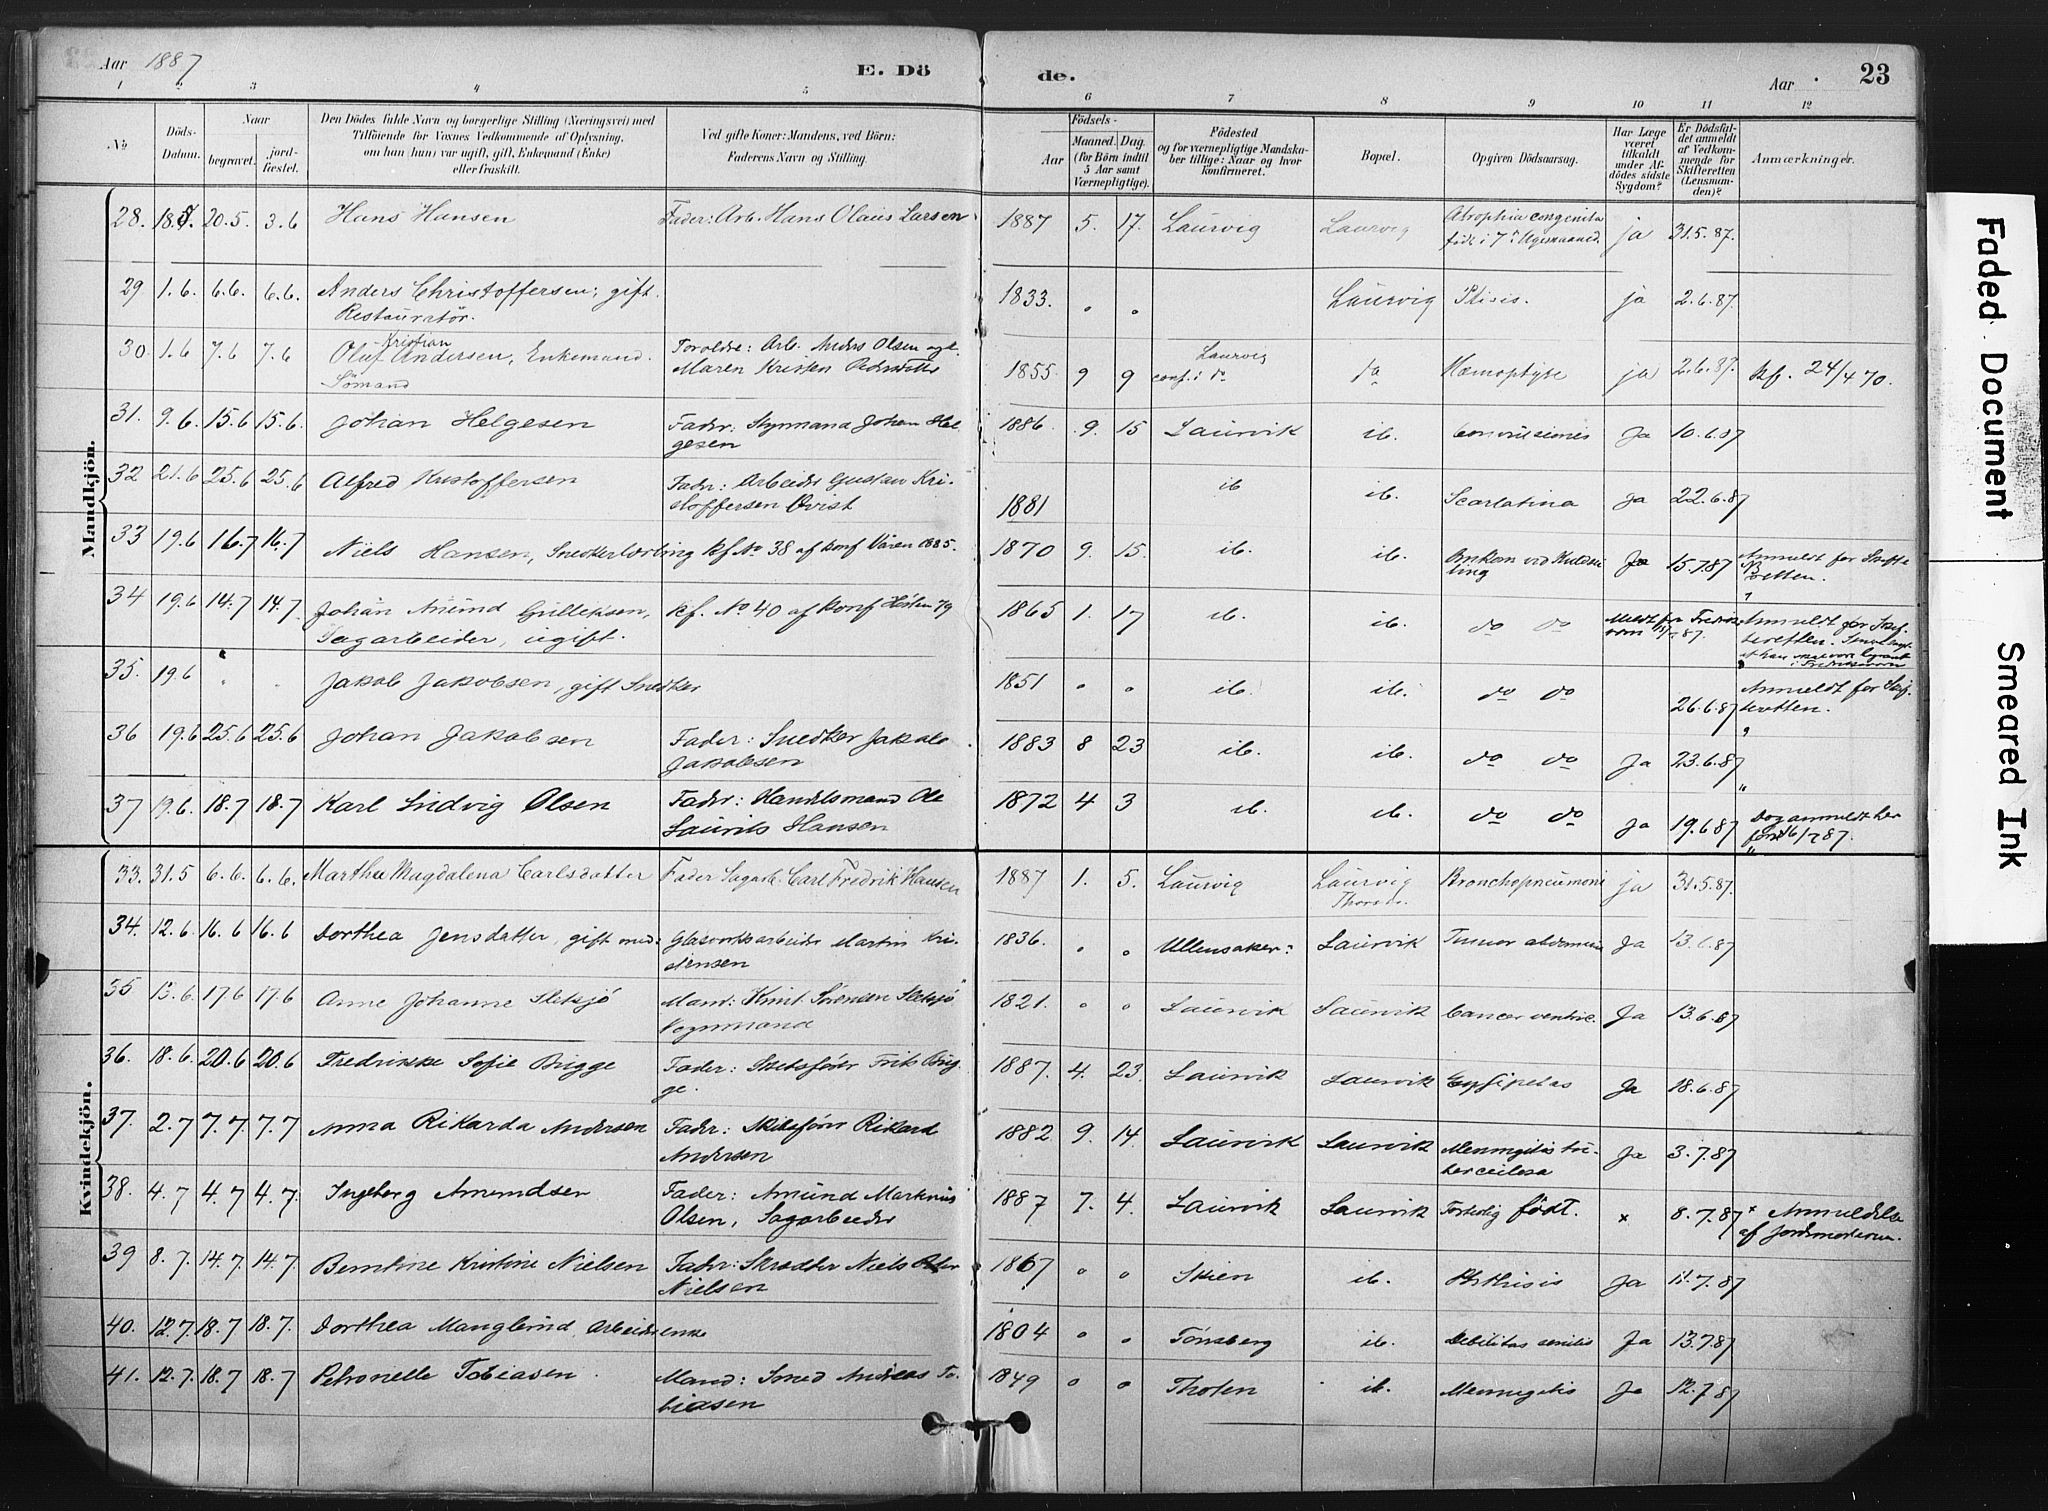 Aar 1887 E. Dö de. Aar 23
1 2 3 4 5 6 7 8 9 10 11 12
No
Döds-Datum.
Naar
begravet.
jord-fæstet.
Den Dödes fulde Navn og borgerlige Stilling (Næringsvei) med
Tilföiende for Voxnes Vedkommende af Oplysning,
om han (hun) var ugift, gift, Enkemand (Enke)
eller fraskilt.
Ved gifte Koner: Mandens, ved Börn:
Faderens Navn og Stilling.
Födsels-
Aar
Maaned. Dag.
(for Börn indtil
5 Aar samt
Værnepligtige).
Födested
og for værnepligtige Mandska-
ber tillige: Naar og hvor
konfirmeret.
Bopæl.
Opgiven Dödsaarsag.
Har Læge
været
tilkaldt
under Af-
dödes sidste
Sygdom?
Er Dödsfal-
det anmeldt
af Vedkom-
mende for
Skifteretten
(Lensman-
den)?
Anmærkninger.
Mandkjön.
28. 18.5 20.5. 3.6 Hans Hansen Fader: Arb. Hans Olaus Larsen 1887 5. 17. Laurvig Laurvig Atrophia congenita ja 31.5.87.
29 1.6. 6.6. 6.6. Anders Christoffersen; gift. 1833. " " Laurvig Ptisis. ja 2.6.87.
Restauratör.
30. 1.6 7.6 7.6 Oluf Kristian Andersen, Enkemand. Foroldre: Arb. Anders Olsen og 1855. 9 9 Laurvig do Hæmoptyse ja 2.6.87. kf. 24/4 70.
Sömand Maren Kristen conf. i do
31. 9.6. 15.6 15.6. Johan Helgesen Fader: Styrmand Johan Hel- 1886. 9. 15 Laurvik ib. Convulsiones Ja 10.6.87
gesen
32 21.6 25.6 25.6 Alfred Kristoffersen Fader: Arbeider Gustav Kri- 1881 ib ib. Scarlatina Ja 22.6.87
stoffersen Qvist
33 19.6 16.7 16.7 Niels Hansen, Snedkerlærling kf No 38 af konf Våren 1885. 1870 9. 15. ib. ib. Omkom ved Kuldsei- Ja 15.7.87 Anmeldt for Skifte
ling retten.
34 19.6 14.7 14.7. Johan Amund Gulleksen, kf. No 40 af konf Høsten 79 1865 1. 17 ib. ib. do do Meldt fra Fredriks- Anmeldt for Skif-
Sagarbeider, ugift. teretten.
i Fredriksværn
35. 19.6 " " Jakob Jakobsen, gift Snedker 1851 " " ib. ib. do do 26.6.87 Anmeldt for Skif-
teretten.
36 19.6 25.6 25.6 Johan Jakobsen Fader: Snedker Jakob 1883 8 23 ib. ib. do do Ja 23.6.87 "
Jakobsen
37 19.6. 18.7 18.7 Karl Ludvig Olsen Fader: Handelsmand Ole 1872 4 3 ib. ib. do do Ja 19.6.87 Dog anmeldt her
Laurits Hansen først 16/7 87.
Kvindekjön.
33. 31.5 6.6. 6.6. Martha Magdalena Carlsdatter Fader Sagarb. Carl Fredrik Hansen 1887 1. 5. Laurvig Laurvig Bronchopneumoni ja 31.5.87.
34. 12.6. 16.6 16.6 Dorthea Jensdatter, gift med: Glasverksarbeider Martin Kri- 1836. " " Ullensaker: Laurvik Tumor abdominis Ja 13.6.87
stensen
35 13.6. 17.6 17.6 Anne Johanne Sletsjö Mand: Knut Sörensen Sletsjö 1821. " " Laurvik Laurvik Cancer ventric. Ja 13.6.87
Vognmand
36. 18.6. 20.6 20.6 Fredrikke Sofie Brigge Fader: Skibsfører Frits Brig- 1887. 4. 23. Laurvik Laurvik Erysipelas Ja 18.6.87
ge.
37. 2.7 7.7. 7.7 Anna Rikarda Andersen Fader: Skibsfører Rikard 1882 9. 14. Laurvik Laurvik Meningitis tu- Ja 3.7.87
Andersen berculosa
38. 4.7 4.7 4.7. Ingeborg Amundsen Fader: Amund Markus 1887 7. 4. Laurvik Laurvik Fortidlig født. x 8.7.87 x Anmeldelse
Olsen, Sagarbeider af Jordmoderen.
39 8.7. 14.7. 14.7. Berntine Kristine Nielsen Fader: Skrædder Niels Peter 1867 " " Skien ib. Phthisis Ja 11.7.87
Nielsen
40. 12.7. 18.7 18.7. Dorthea Manglerud, Arbeiderenke 1804 " " Tönsberg ib. Debilitas senilis Ja 13.7.87
41. 12.7. 18.7 18.7 Petronelle Tobiasen Mand: Smed Andreas To- 1849 " " Thoten ib. Meningitis Ja 12.7.87
biasen
Faded Document
Smeared Ink